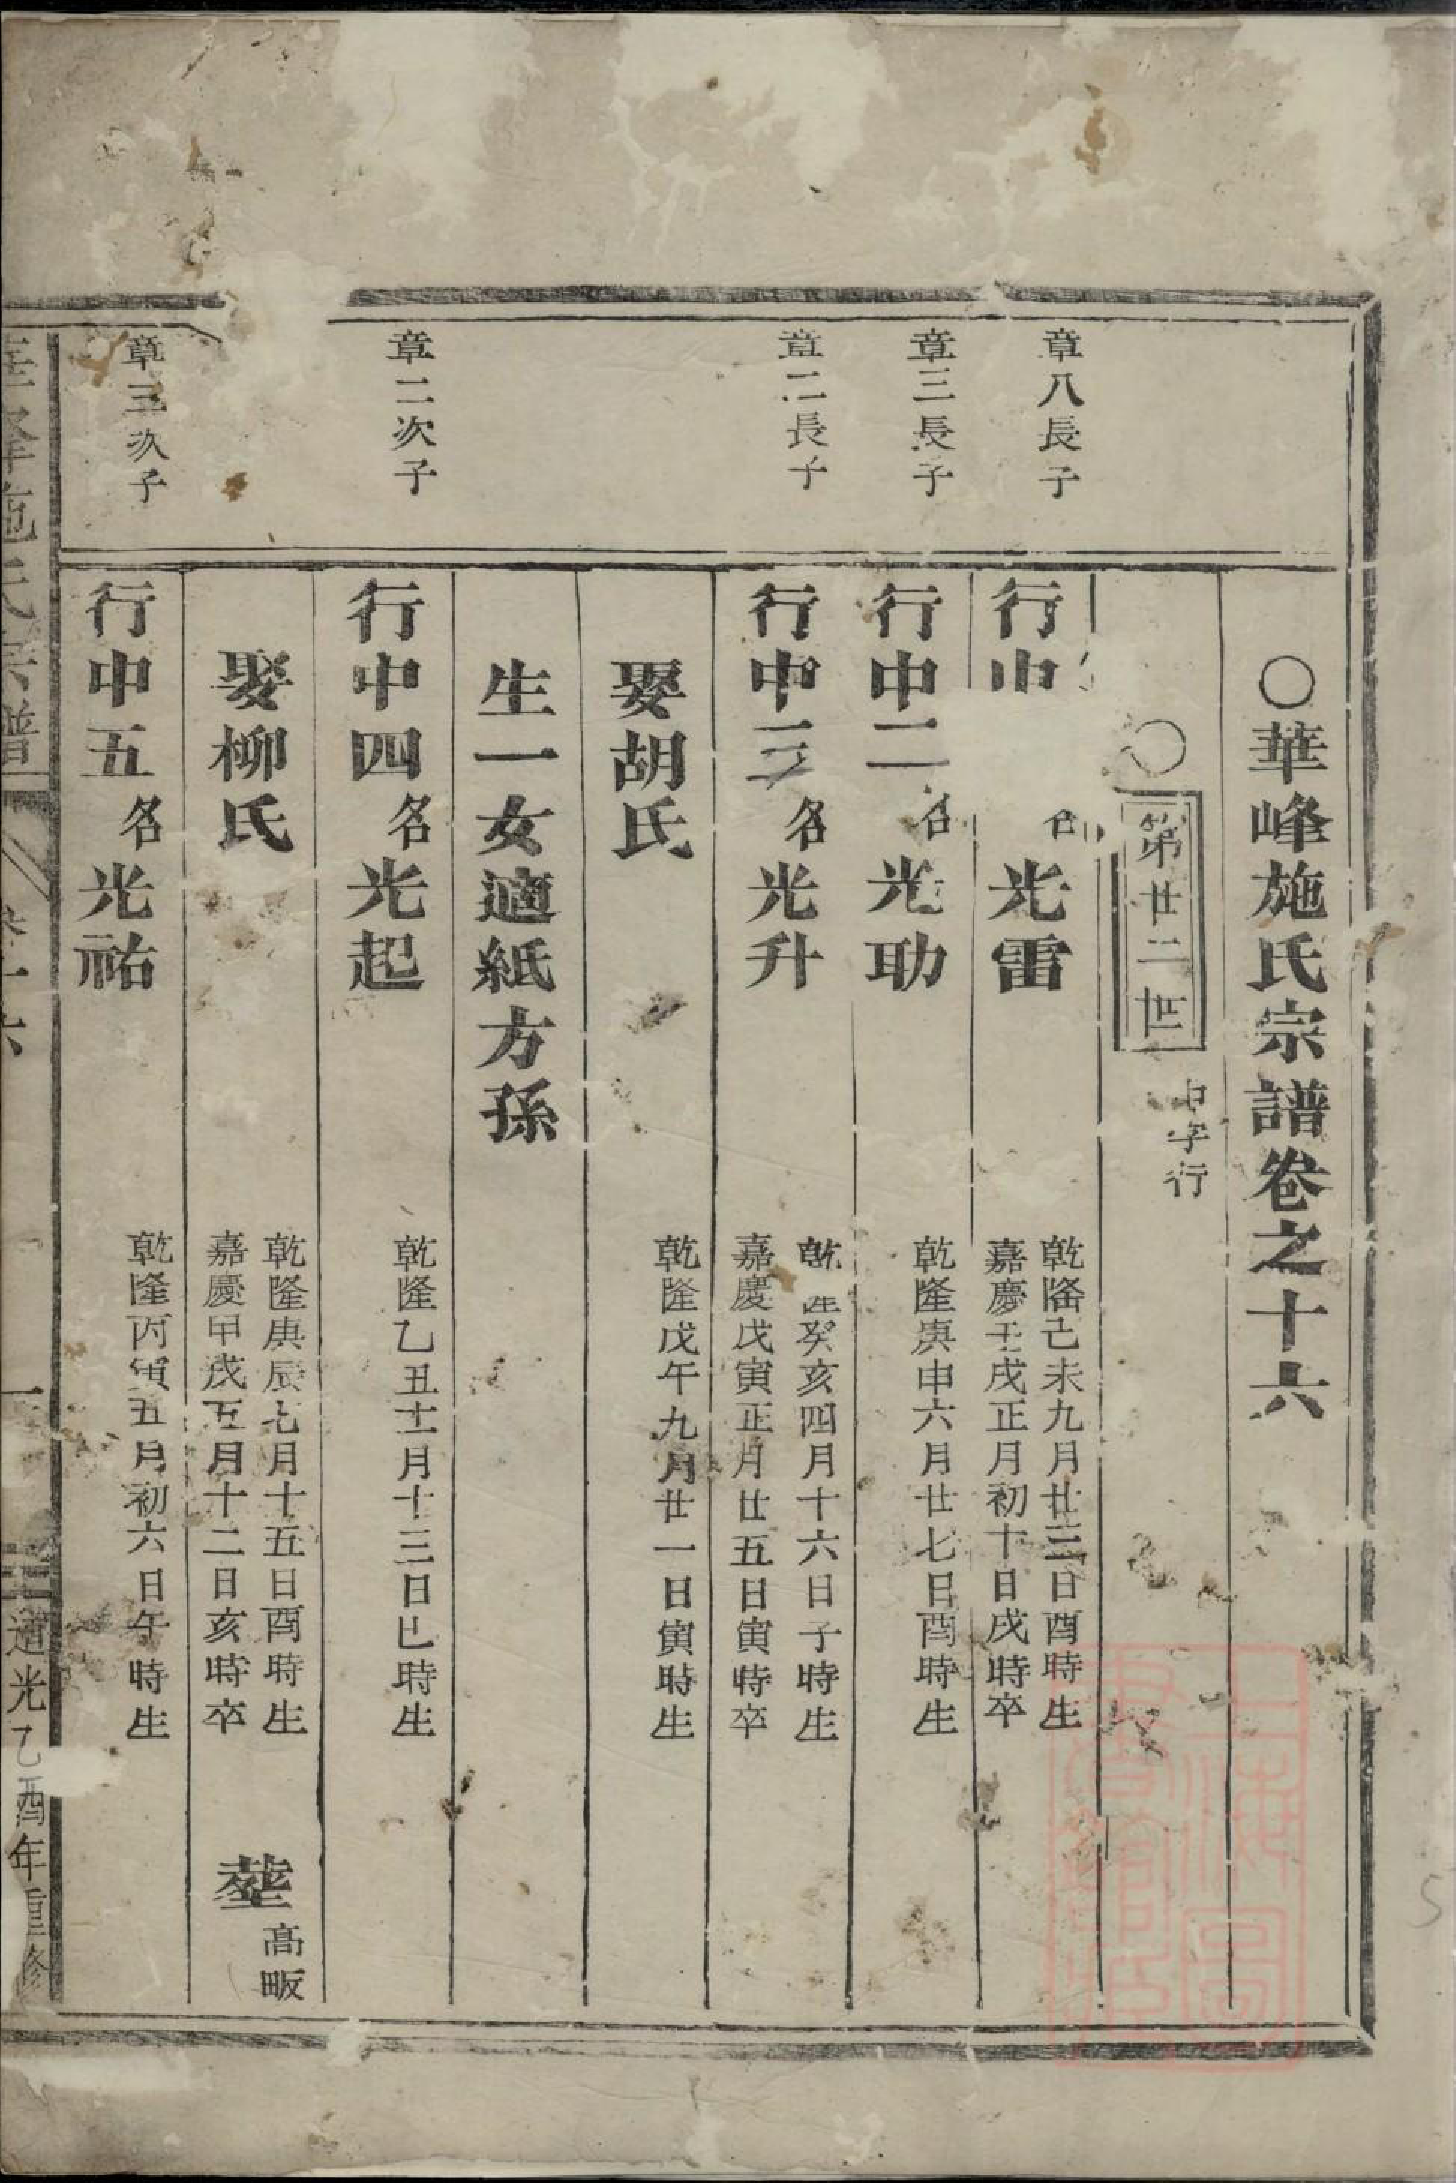 ○華峰施氏宗譜卷之十六
○第廿二世 中字行
章八長子
行中 名光雷
乾隆己未九月廿三日酉時生
嘉慶壬戌正月初十日戌時卒
章三長子
行中二名光助
乾隆庚申六月廿七日酉時生
章二長子
行中三名光升
乾隆癸亥四月十六日子時生
嘉慶戊寅正月廿五日寅時卒
娶胡氏
乾隆戊午九月廿一日寅時生
生一女適紙方孫
章二次子
行中四名光起
乾隆乙丑十一月十三日巳時生
娶柳氏
乾隆庚辰七月十五日酉時生
嘉慶甲戌五月十二日亥時卒
塟高畈
章三次子
行中五名光祐
乾隆丙寅五月初六日午時生
華峰施氏宗譜
卷十六
一
道光乙酉年重修
上海圖書館藏